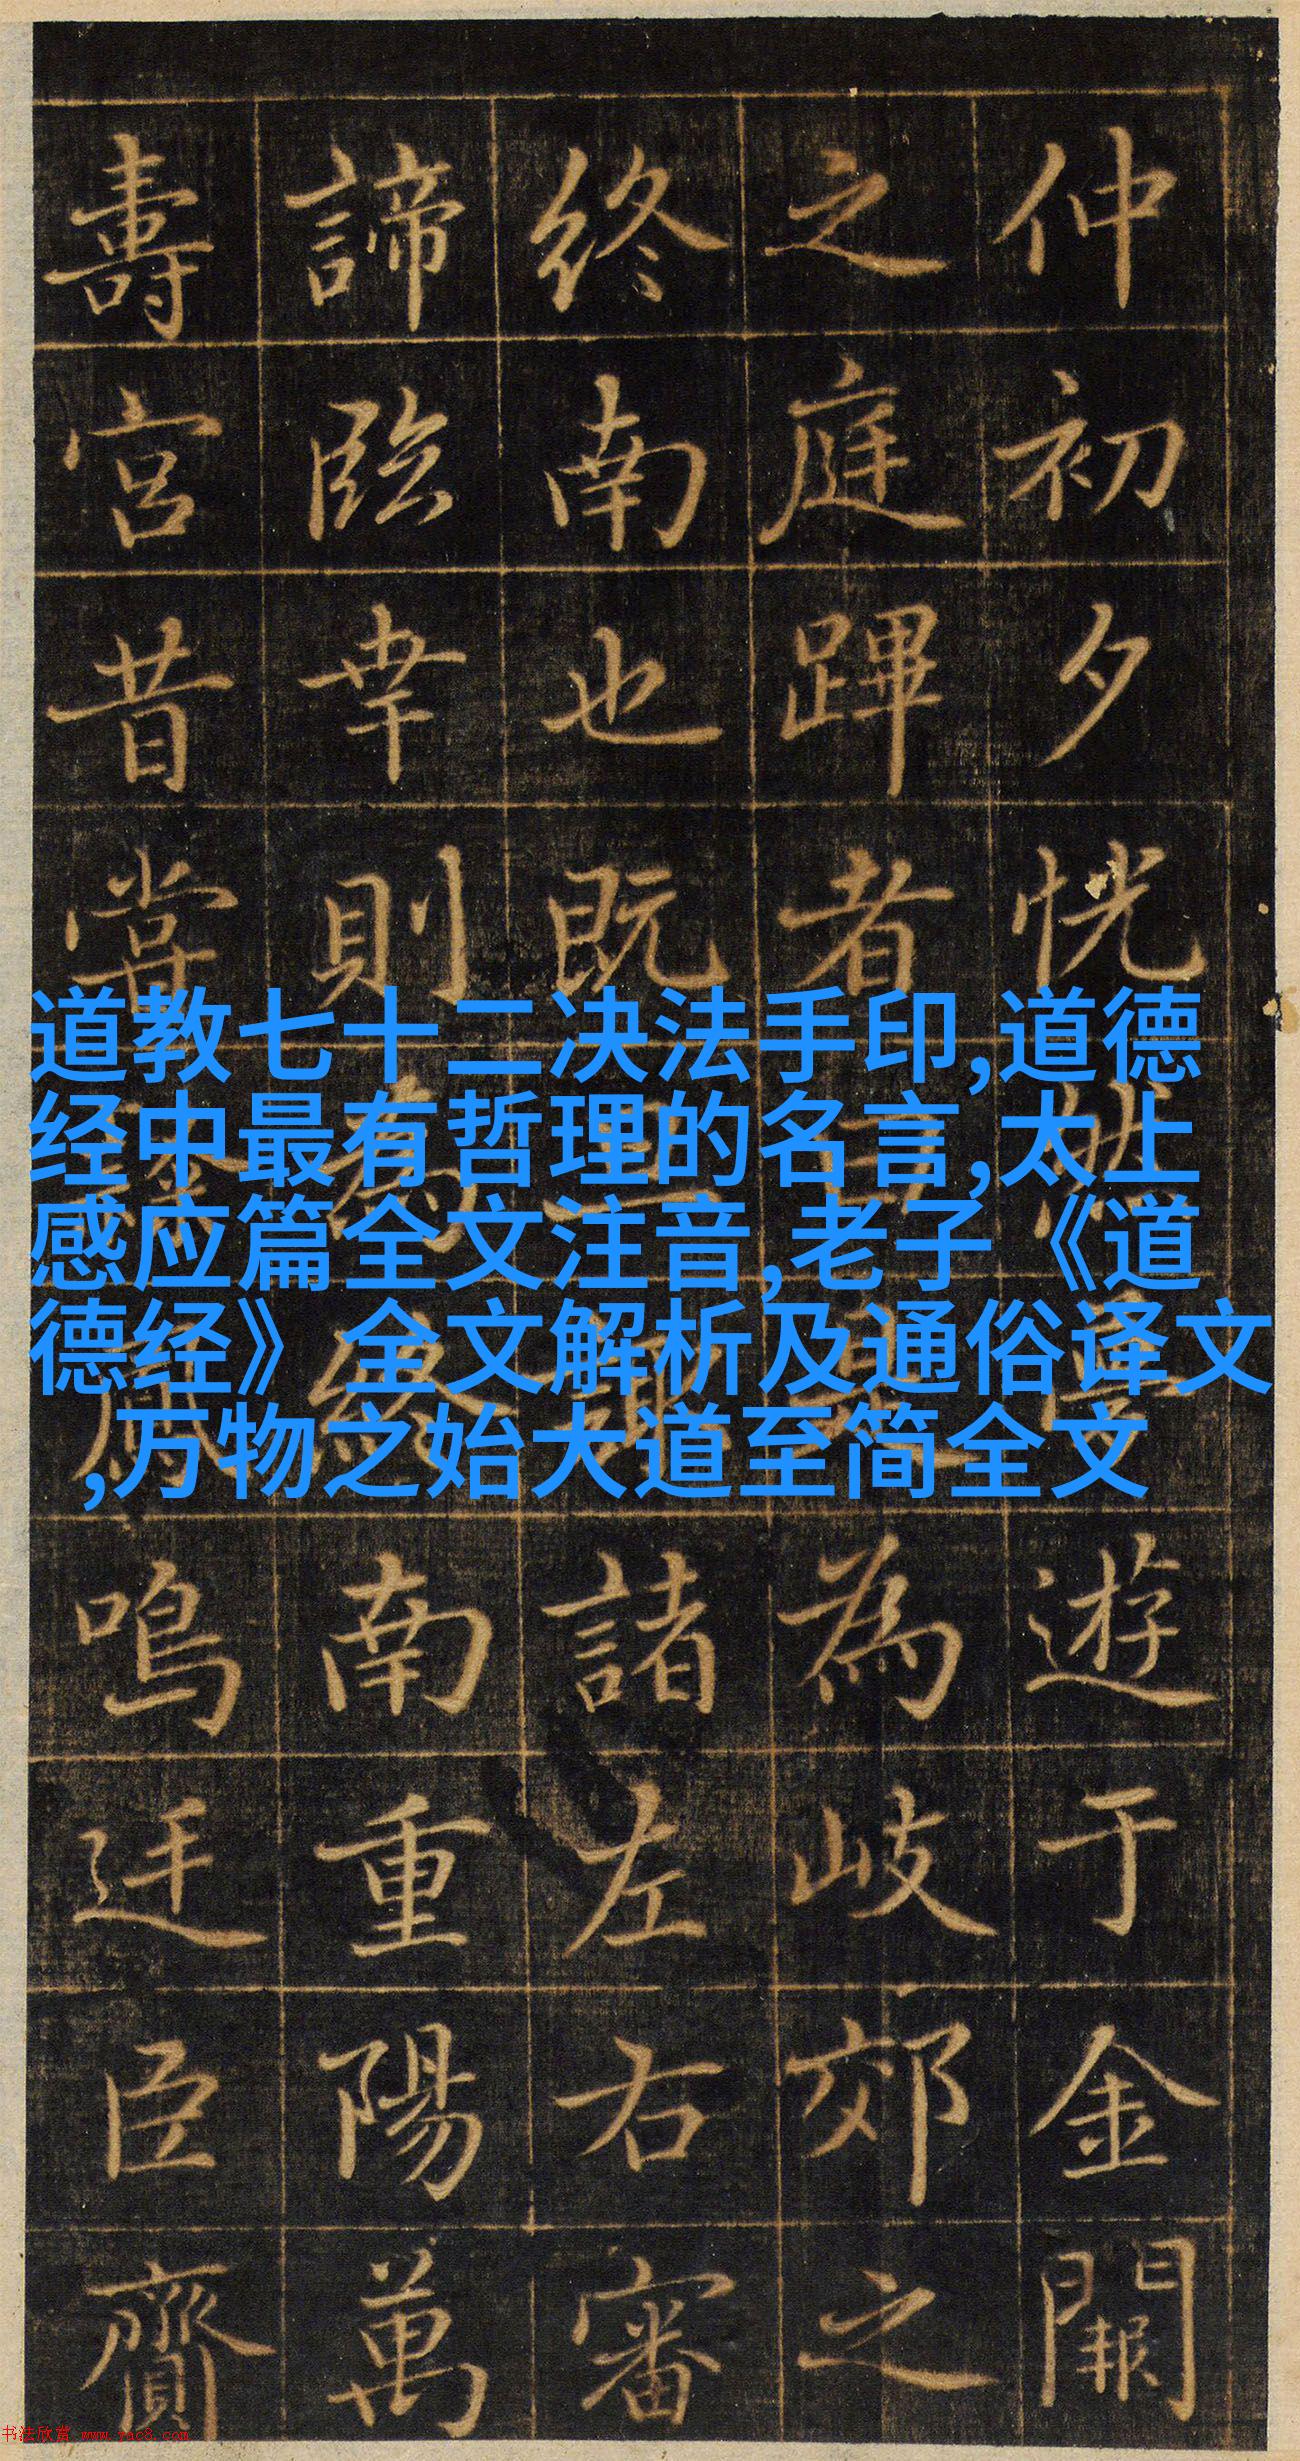 仲初夕恍遊于金闕
之庭蹕者為岐郊之
終南也既諸左右審
諦臨幸則為終南重陽萬
壽宮昔嘗鳳鳴迓臣齎
道教七十二决法手印,道德
经中最有哲理的名言,太上
感应篇全文注音,老子《道
德经》全文解析及通俗译文
,万物之始大道至简全文
书法欣赏 www.yac8.com